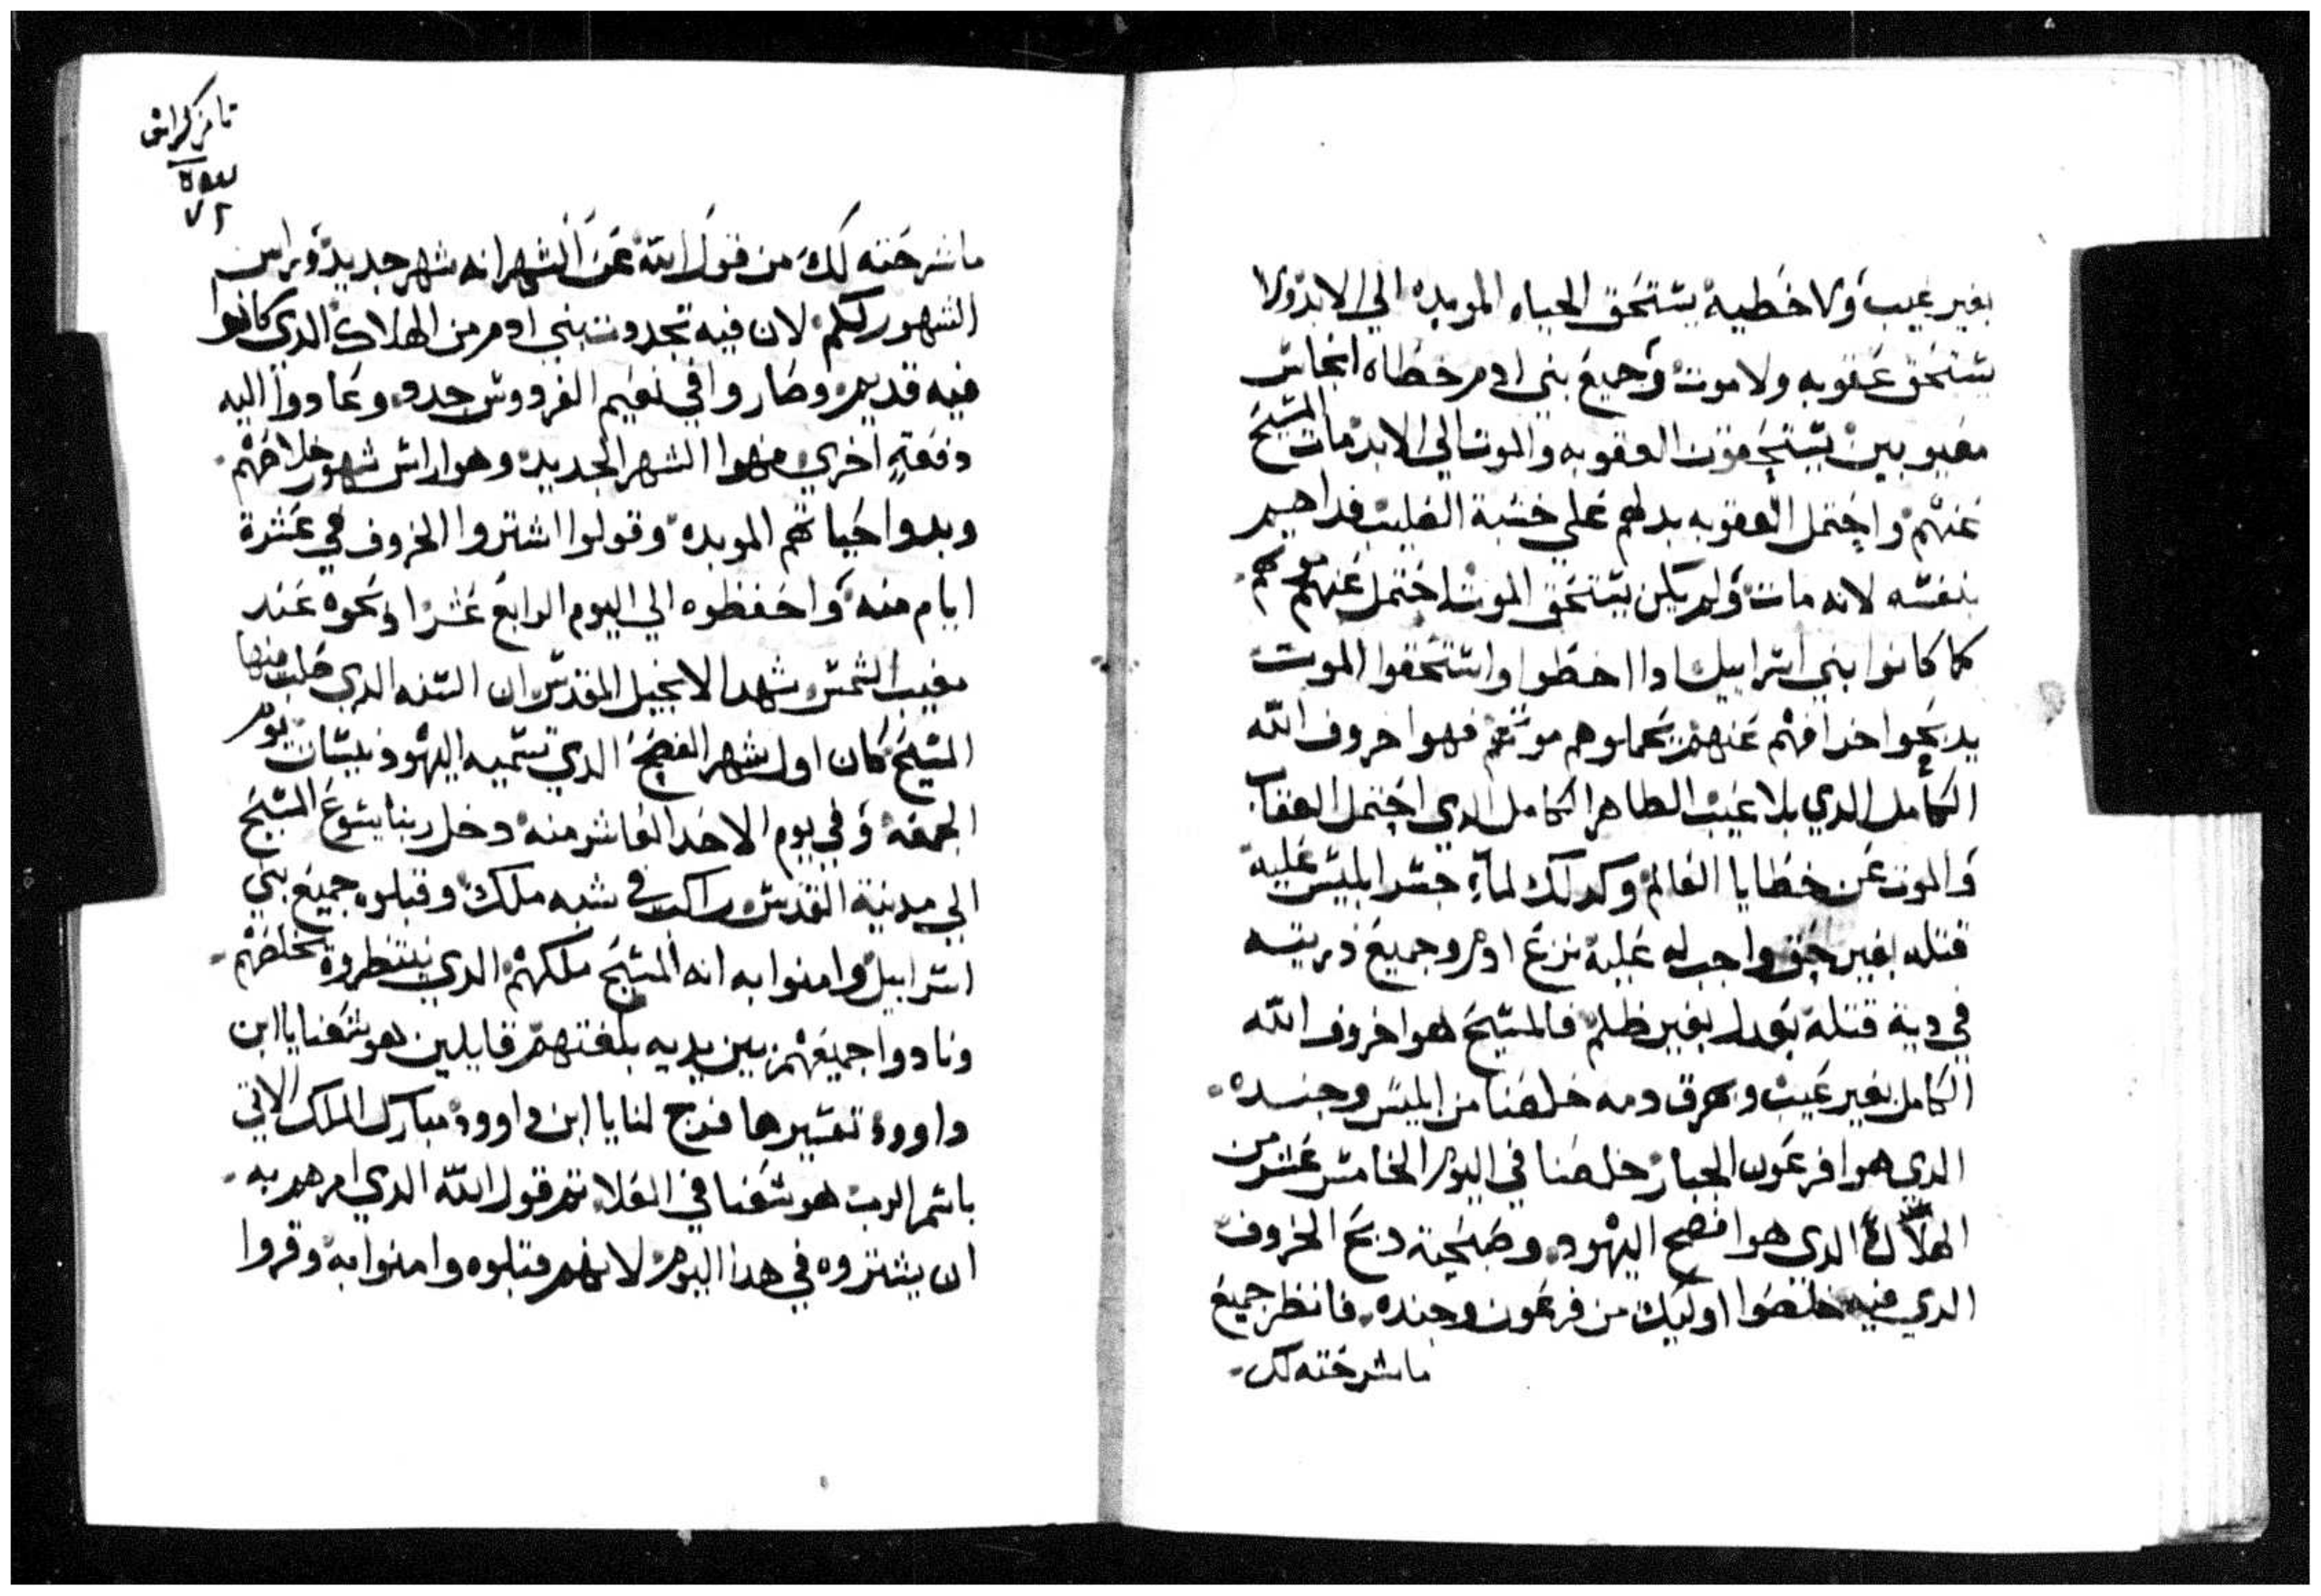 بغير عيب ولا خطية يستحق الحياه الموبده الي الابد ولا
يستحق عقوبه ولا موت وجميع بني ادم خطاه انجاس
معيوبين يستحقون العقوبه والموت الي الابد مات المسيح
عنهم واحتمل العقوبه بدلهم علي خشبة الصليب فداهم
بنفسه لانه مات ولم يكن يستحق الموت احتمل عنهم موتهم
كما كانوا بني اسراييل اذا اخطوا واستحقوا الموت
يدبحوا خرافهم عنهم يحملوهم موتهم فهوا خروف الله
الكامل الدي بلا عيب الطاهر الكامل الدي احتمل العقاب
والموت عن خطايا العالم وكدلك لما جسر ابليس عليه
قتله بغير حق واجب له عليه نزع ادم وجميع دريته
في دية قتله بعدل بغير ظلم فالمسيح هوا خروف الله
الكامل بغير عيب وبهرق دمه خلصنا من ابليس وجنده
الدي هوا فرعون الجبار خلصنا في اليوم الخامس عشر من
الهلال الدي هوا فصح اليهود وضحية دبح الخروف
الدي فيه خلصوا اوليك من فرعون وجنده فانظر جميع
ما شرحته لك
ما شرحته لك من قول الله عن الشهر انه شهر جديد وراس
الشهور لكم لان فيه تجددت بني ادم من الهلاك الدي كانوا
فيه قديم وصاروا في نعيم الفردوس جدد وعادوا اليه
دفعة اخري فهوا الشهر الجديد وهوا راس شهور خلاصهم
وبدوا حياتهم الموبده وقولوا اشتروا الخروف في عشرة
ايام منه واحفظوه الي اليوم الرابع عشر ادبحوه عند
مغيب الشمس شهد الانجيل المقدس ان السنه الدي صلب فيها
المسيح كان اول شهر الفصح الدي تسميه اليهود نيسان يوم
الجمعه وفي يوم الاحد العاشر منه دخل ربنا يسوع المسيح
الي مدينة القدس راكب في شبه ملك وقبلوه جميع بني
اسراييل وامنوا به انه المسيح ملكهم الدي ينتظروه يخلصهم
ونادوا جميعهم بين يديه بلغتهم قايلين هوشعنا يا ابن
داوود تفسيرها فرج لنا يا ابن داوود مبارك الملك الاتي
باسم الرب هوشعنا في العلا تم قول الله الدي امرهم به
ان يشتروه في هدا اليوم لانهم قبلوه وامنوا به وقروا